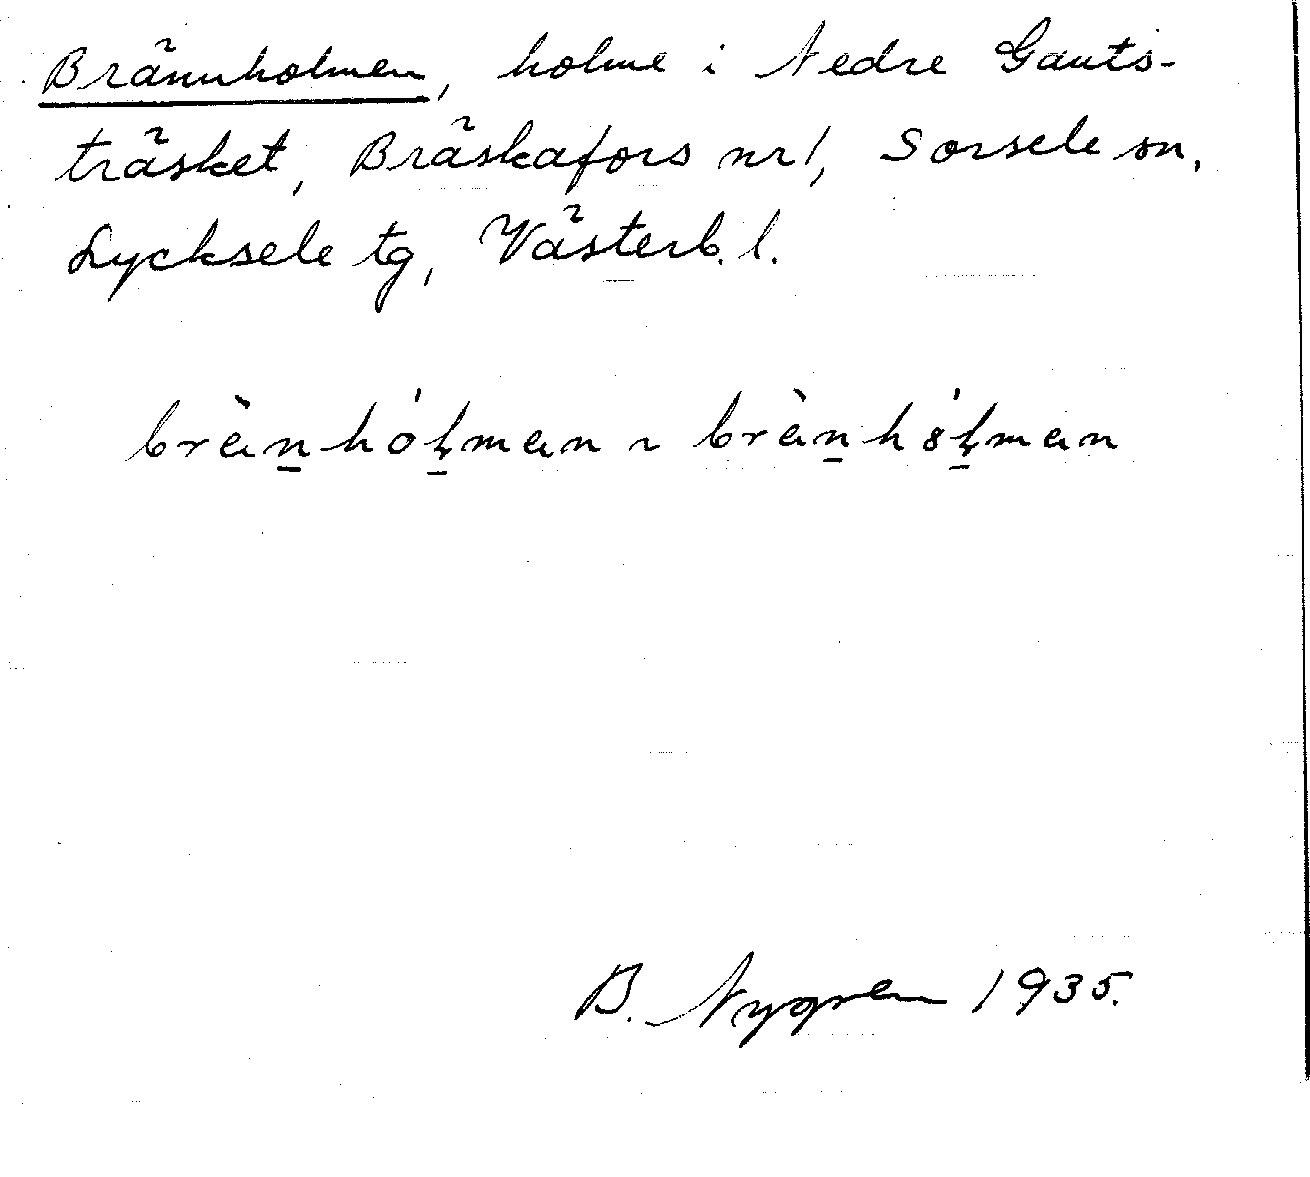 Brännholmen, holme i Nedre Gauts-
träsket, Bräskafors nr 1, Sorsele sn,
Lycksele tg, Västerb. l.
brèn̲hóɫ̲men ~ brèn̲hɵ́ɫ̲men
B. Nygren 1935.